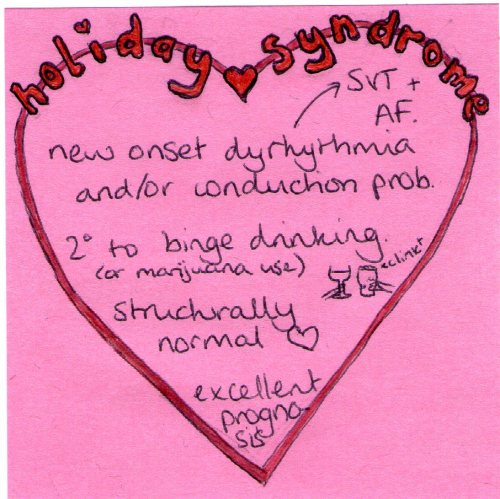 holiday ♥ syndrome
SVT +
AF.
new onset dyrhythmia
and/or conduction prob.
2° to binge drinking.
(or marijuana use)
*clink*
structurally
normal ♡
excellent
progno-
sis